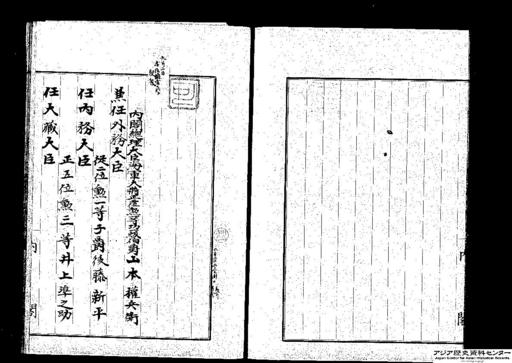 内閣總理大臣海軍大將從二位勲一等功二級伯爵山本權兵衛
兼任外務大臣
從二位勲一等子爵後藤新平
任内務大臣
正五位勲三等井上準之助
任大藏大臣
内閣
内閣
アジア歴史資料センター
Japan Center for Asian Historical Records